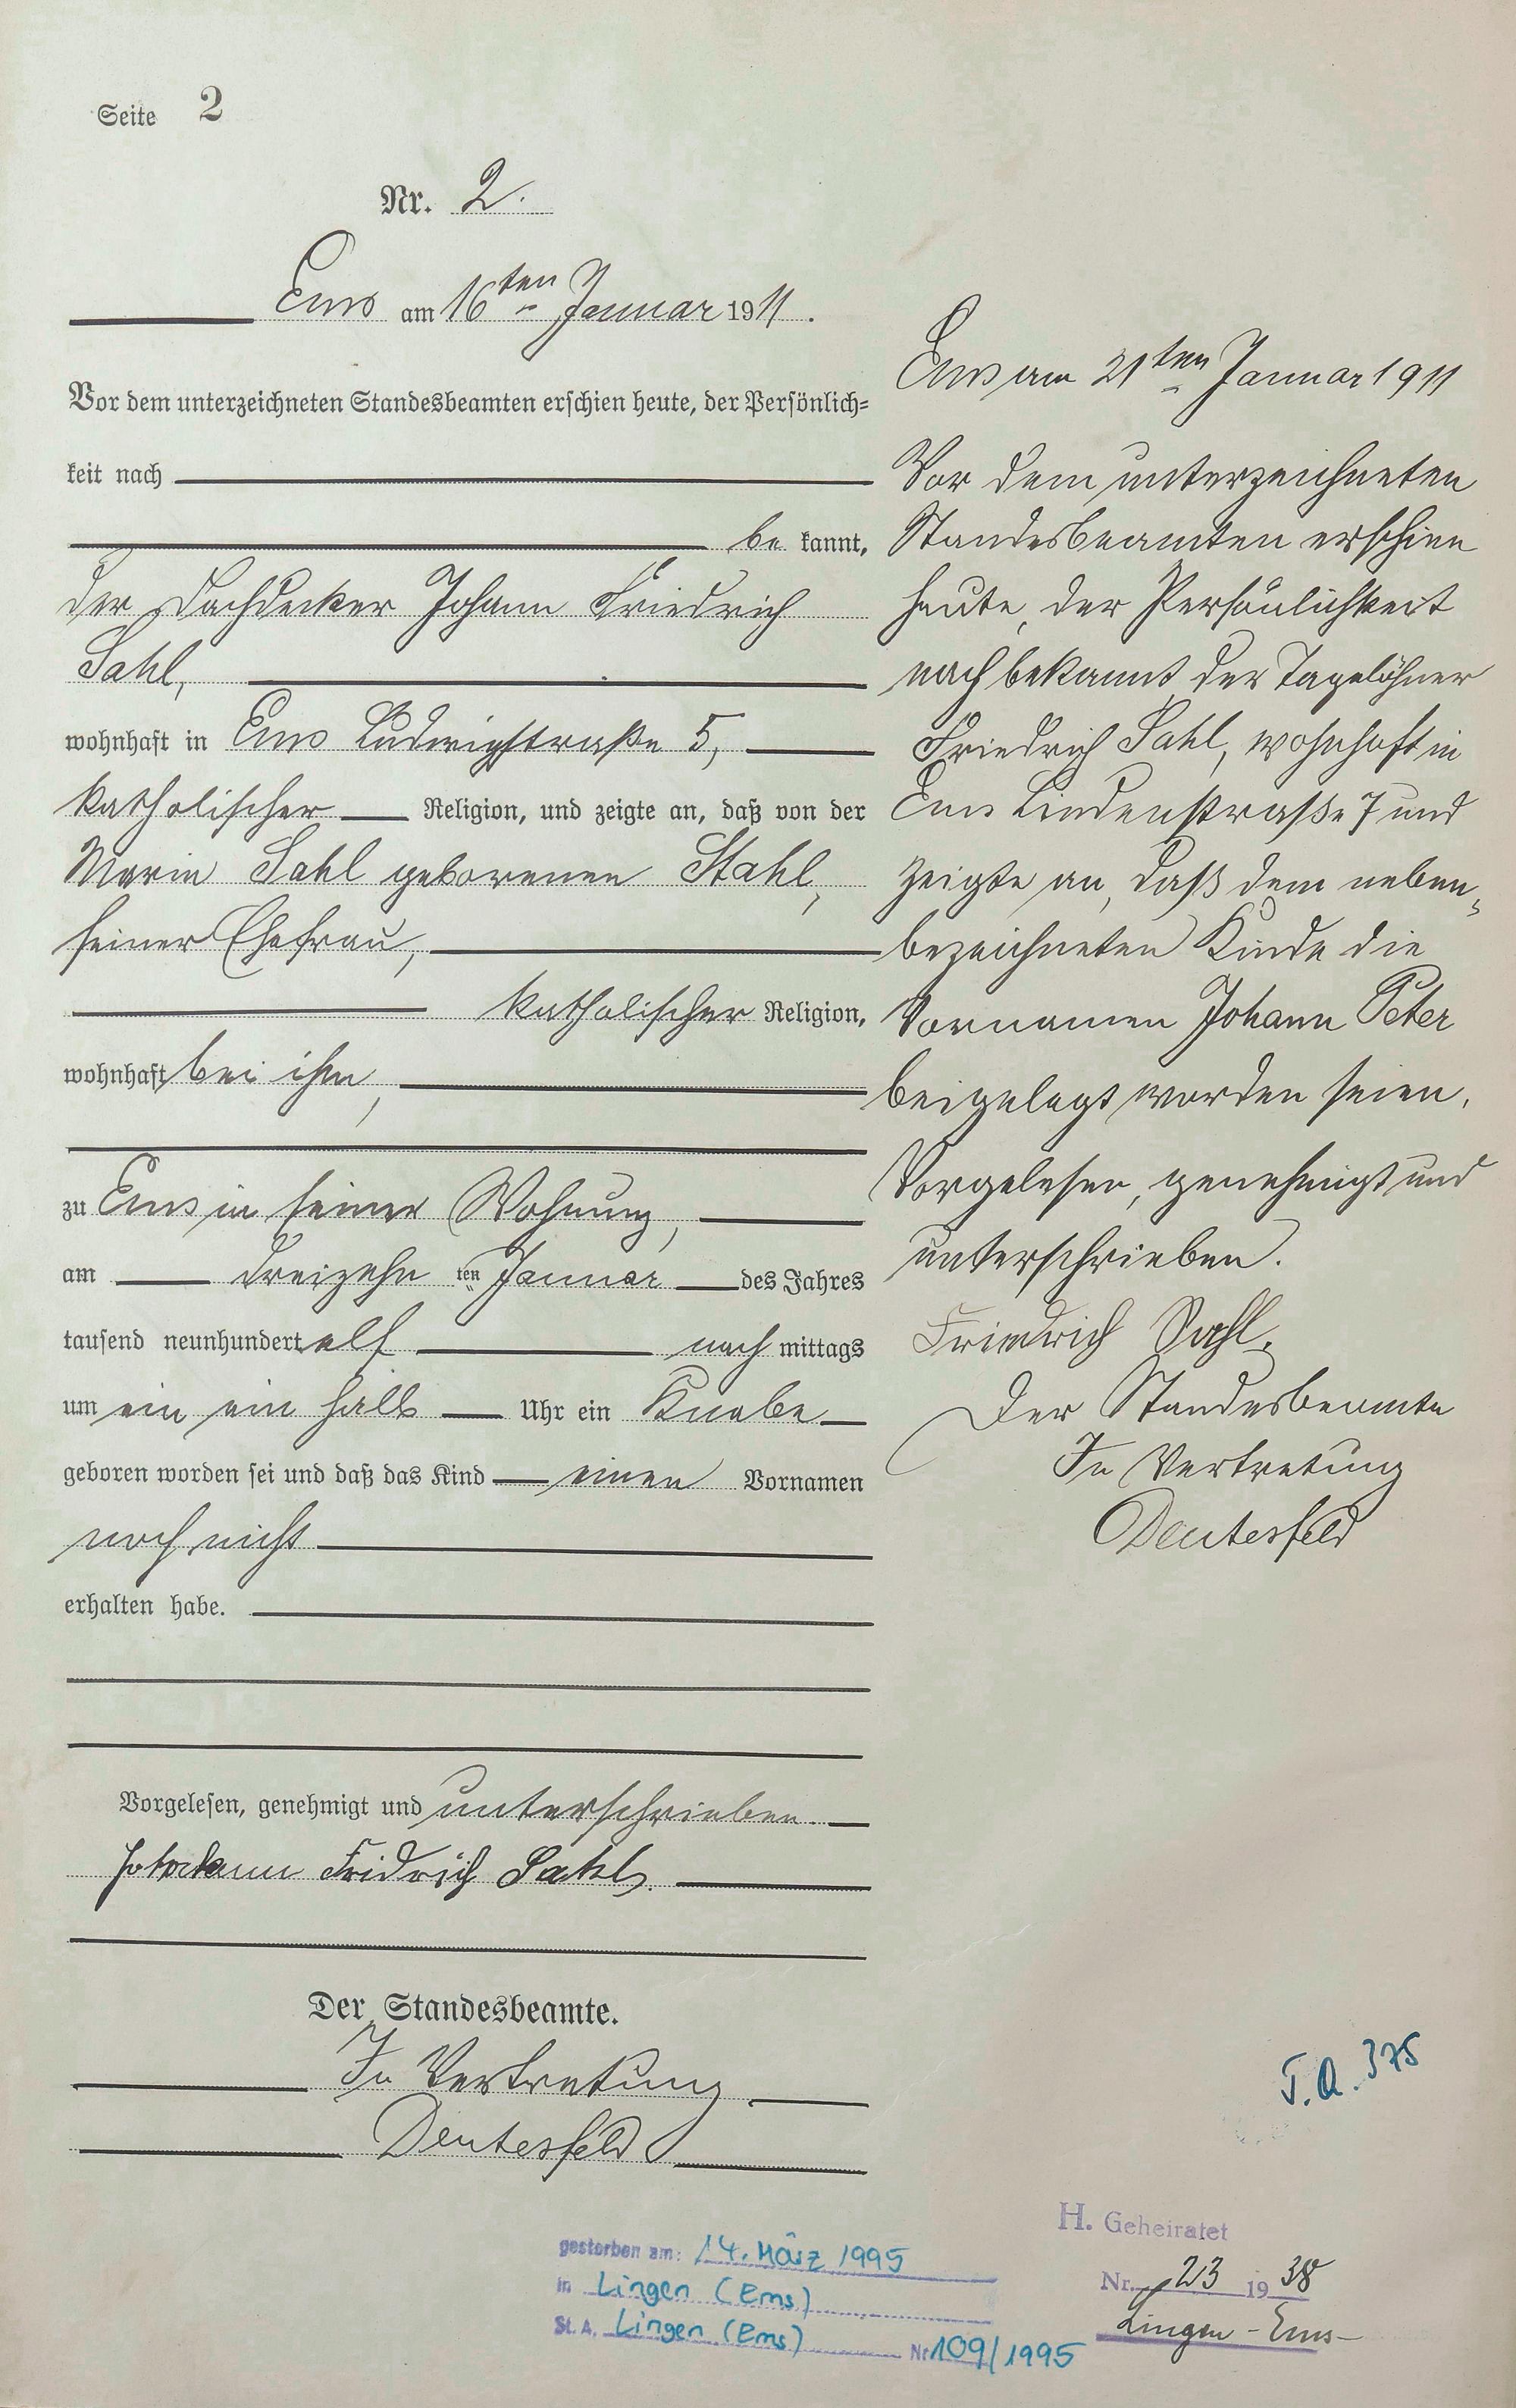 Seite 2
Nr. 2.
Ems am 16ten Januar 1911.
Vor dem unterzeichneten Standesbeamten erschien heute, der Persönlich=
keit nach
be kannt,
der Dachdecker Johann Friedrich
Sahl,
wohnhaft in Ems Ludwigstraße 5,
katholischer Religion, und zeigte an, daß von der
Maria Sahl geborenen Stahl,
seiner Ehefrau,
katholischer Religion,
wohnhaft bei ihm,
zu Ems in seiner Wohnung,
am dreizehn ten Januar des Jahres
tausend neunhundert elf nach mittags
um ein ein halb Uhr ein Knabe
geboren worden sei und daß das Kind einen Vornamen
noch nicht
erhalten habe.
Vorgelesen, genehmigt und unterschrieben.
Fridrich Sahl.
Der Standesbeamte.
In Vertretung
Deutesfeld
Ems am 21ten Januar 1911
Vor dem unterzeichneten
Standesbeamten erschien
heute, der Persönlichkeit
nach bekannt der Tagelöhner
Friedrich Sahl, wohnhaft in
Ems Lindenstraße 7 und
zeigte an, daß dem neben=
bezeichneten Kinde die
Vornamen Johann Peter
beigelegt worden seien.
Vorgelesen, genehmigt und
unterschrieben.
Friedrich Sahl.
Der Standesbeamte
In Vertretung
Deutesfeld
T.A. 375
H. Geheiratet
Nr. 23 1938
Lingen - Ems -
gestorben am: 14. März 1995
in Lingen (Ems)
St. A. Lingen (Ems) Nr 109/1995